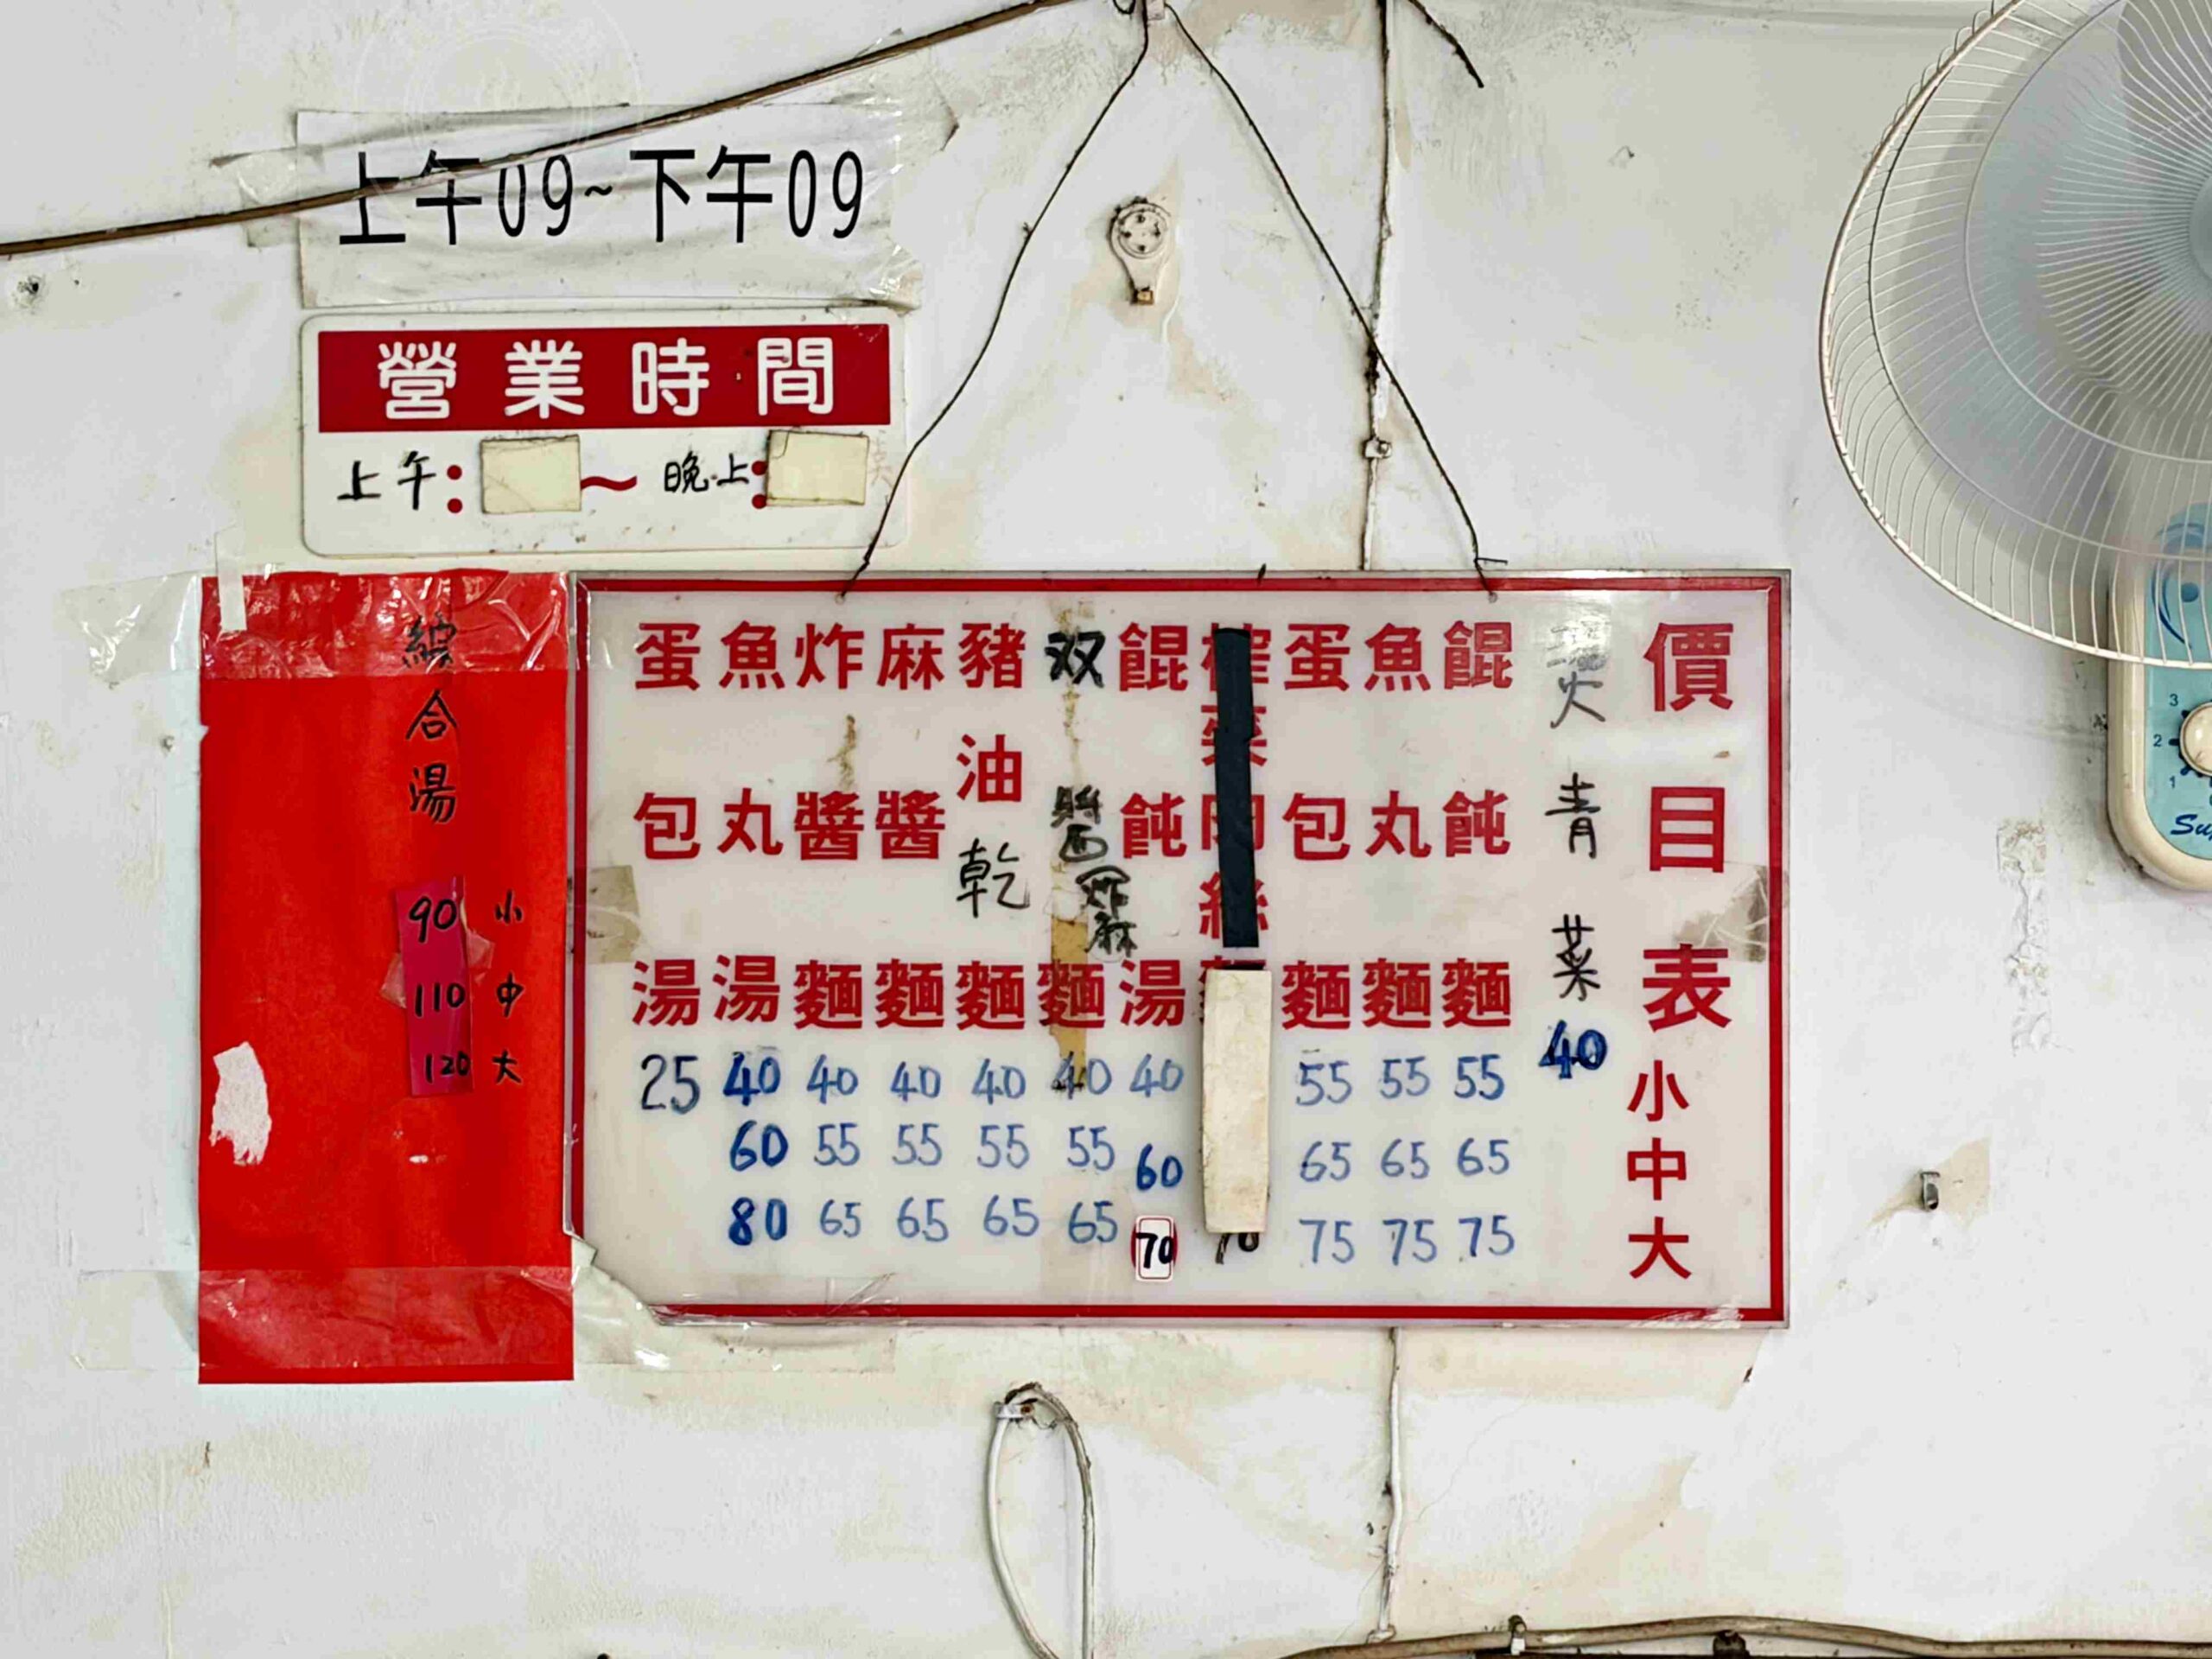 上午09~下午09
營業時間
上午：～晚上：
價目表 小 中 大
燙青菜 40
餛飩麵 55 65 75
魚丸麵 55 65 75
蛋包麵 55 65 75
榨菜肉絲
餛飩湯 40 60 70
双醬(炸麻麵 40 55 65
豬油乾麵 40 55 65
麻醬麵 40 55 65
炸醬麵 40 55 65
魚丸湯 40 60 80
蛋包湯 25
綜合湯
90 小
110 中
120 大
3
2
1